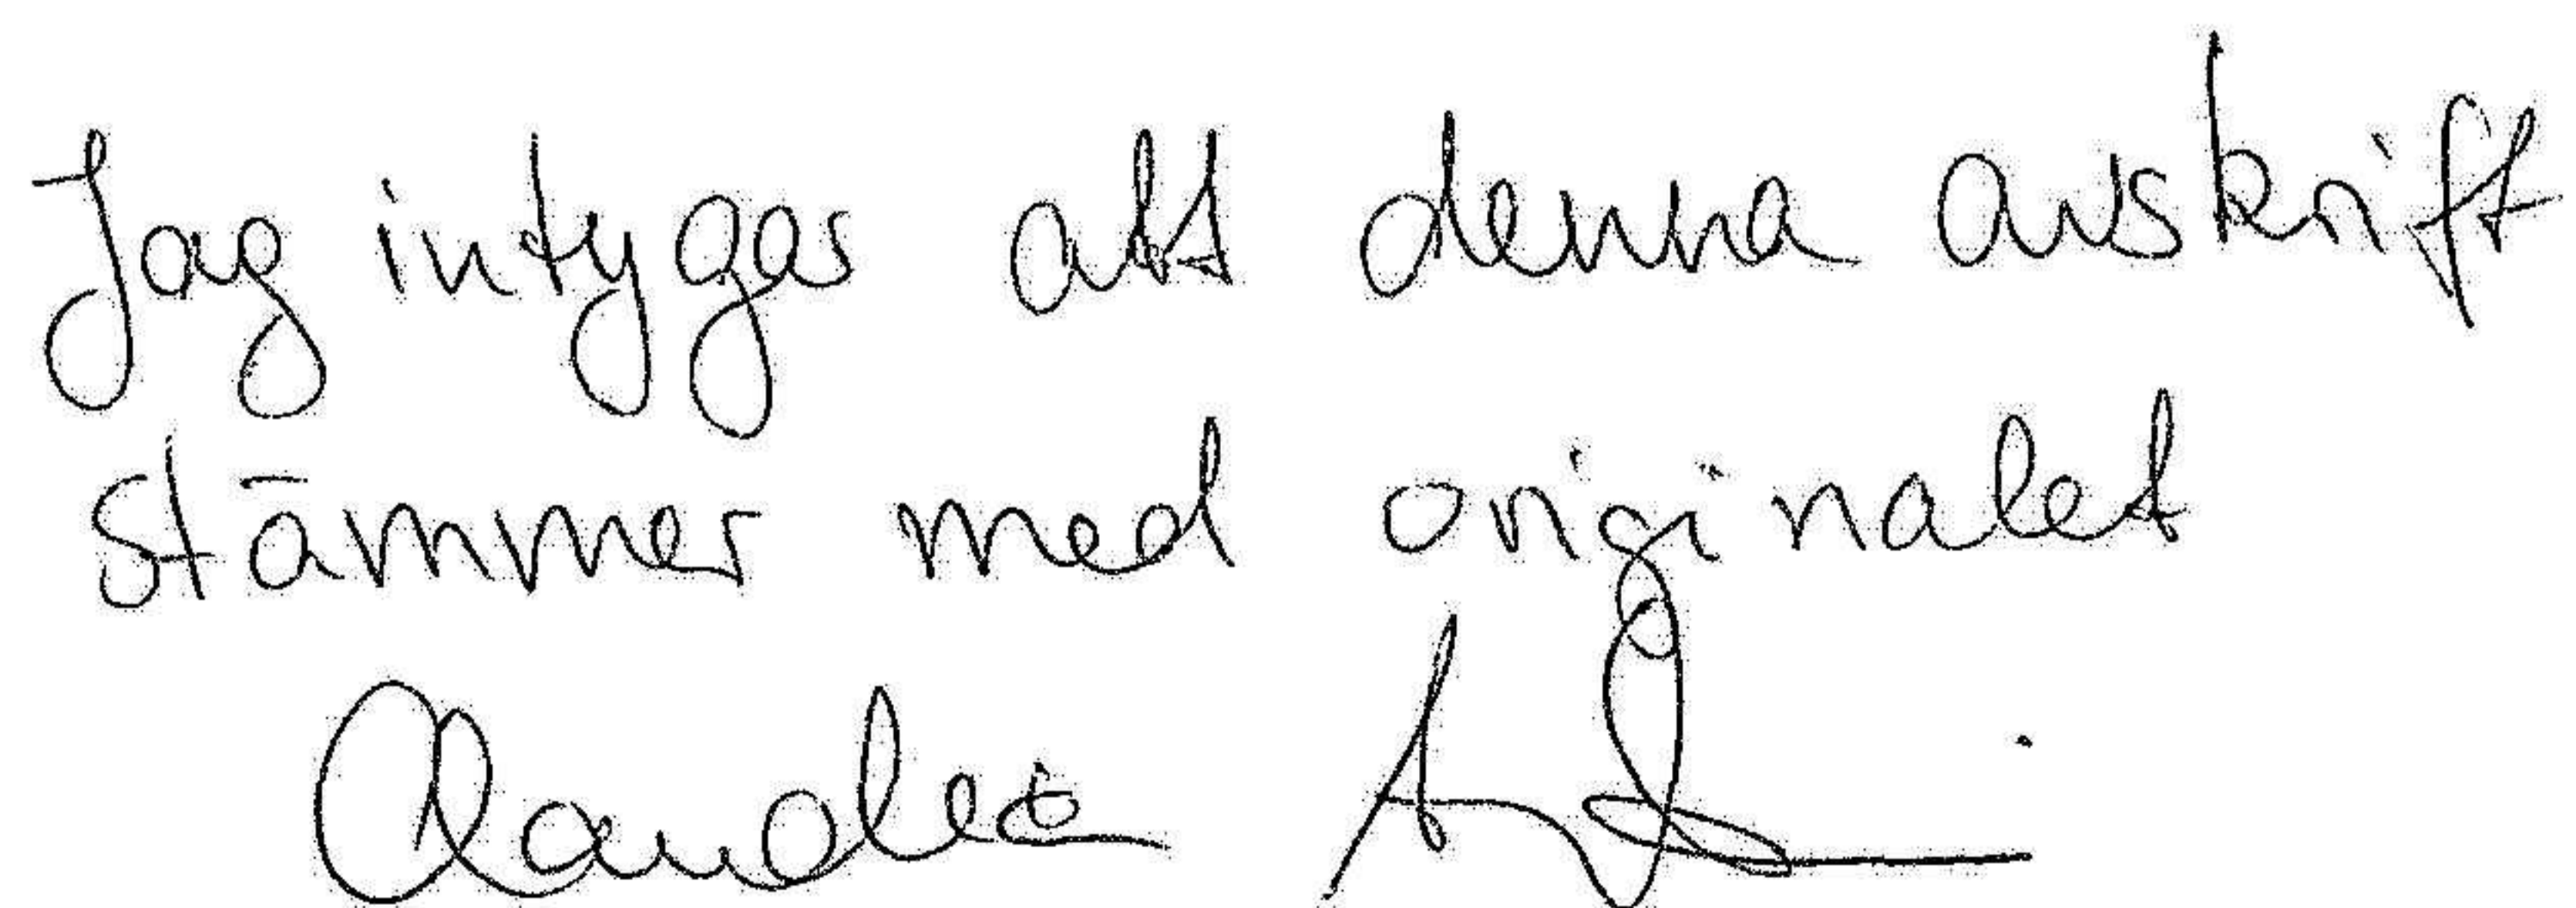 Jag intygar att denna avskrift
stämmer med originalet
Claudia